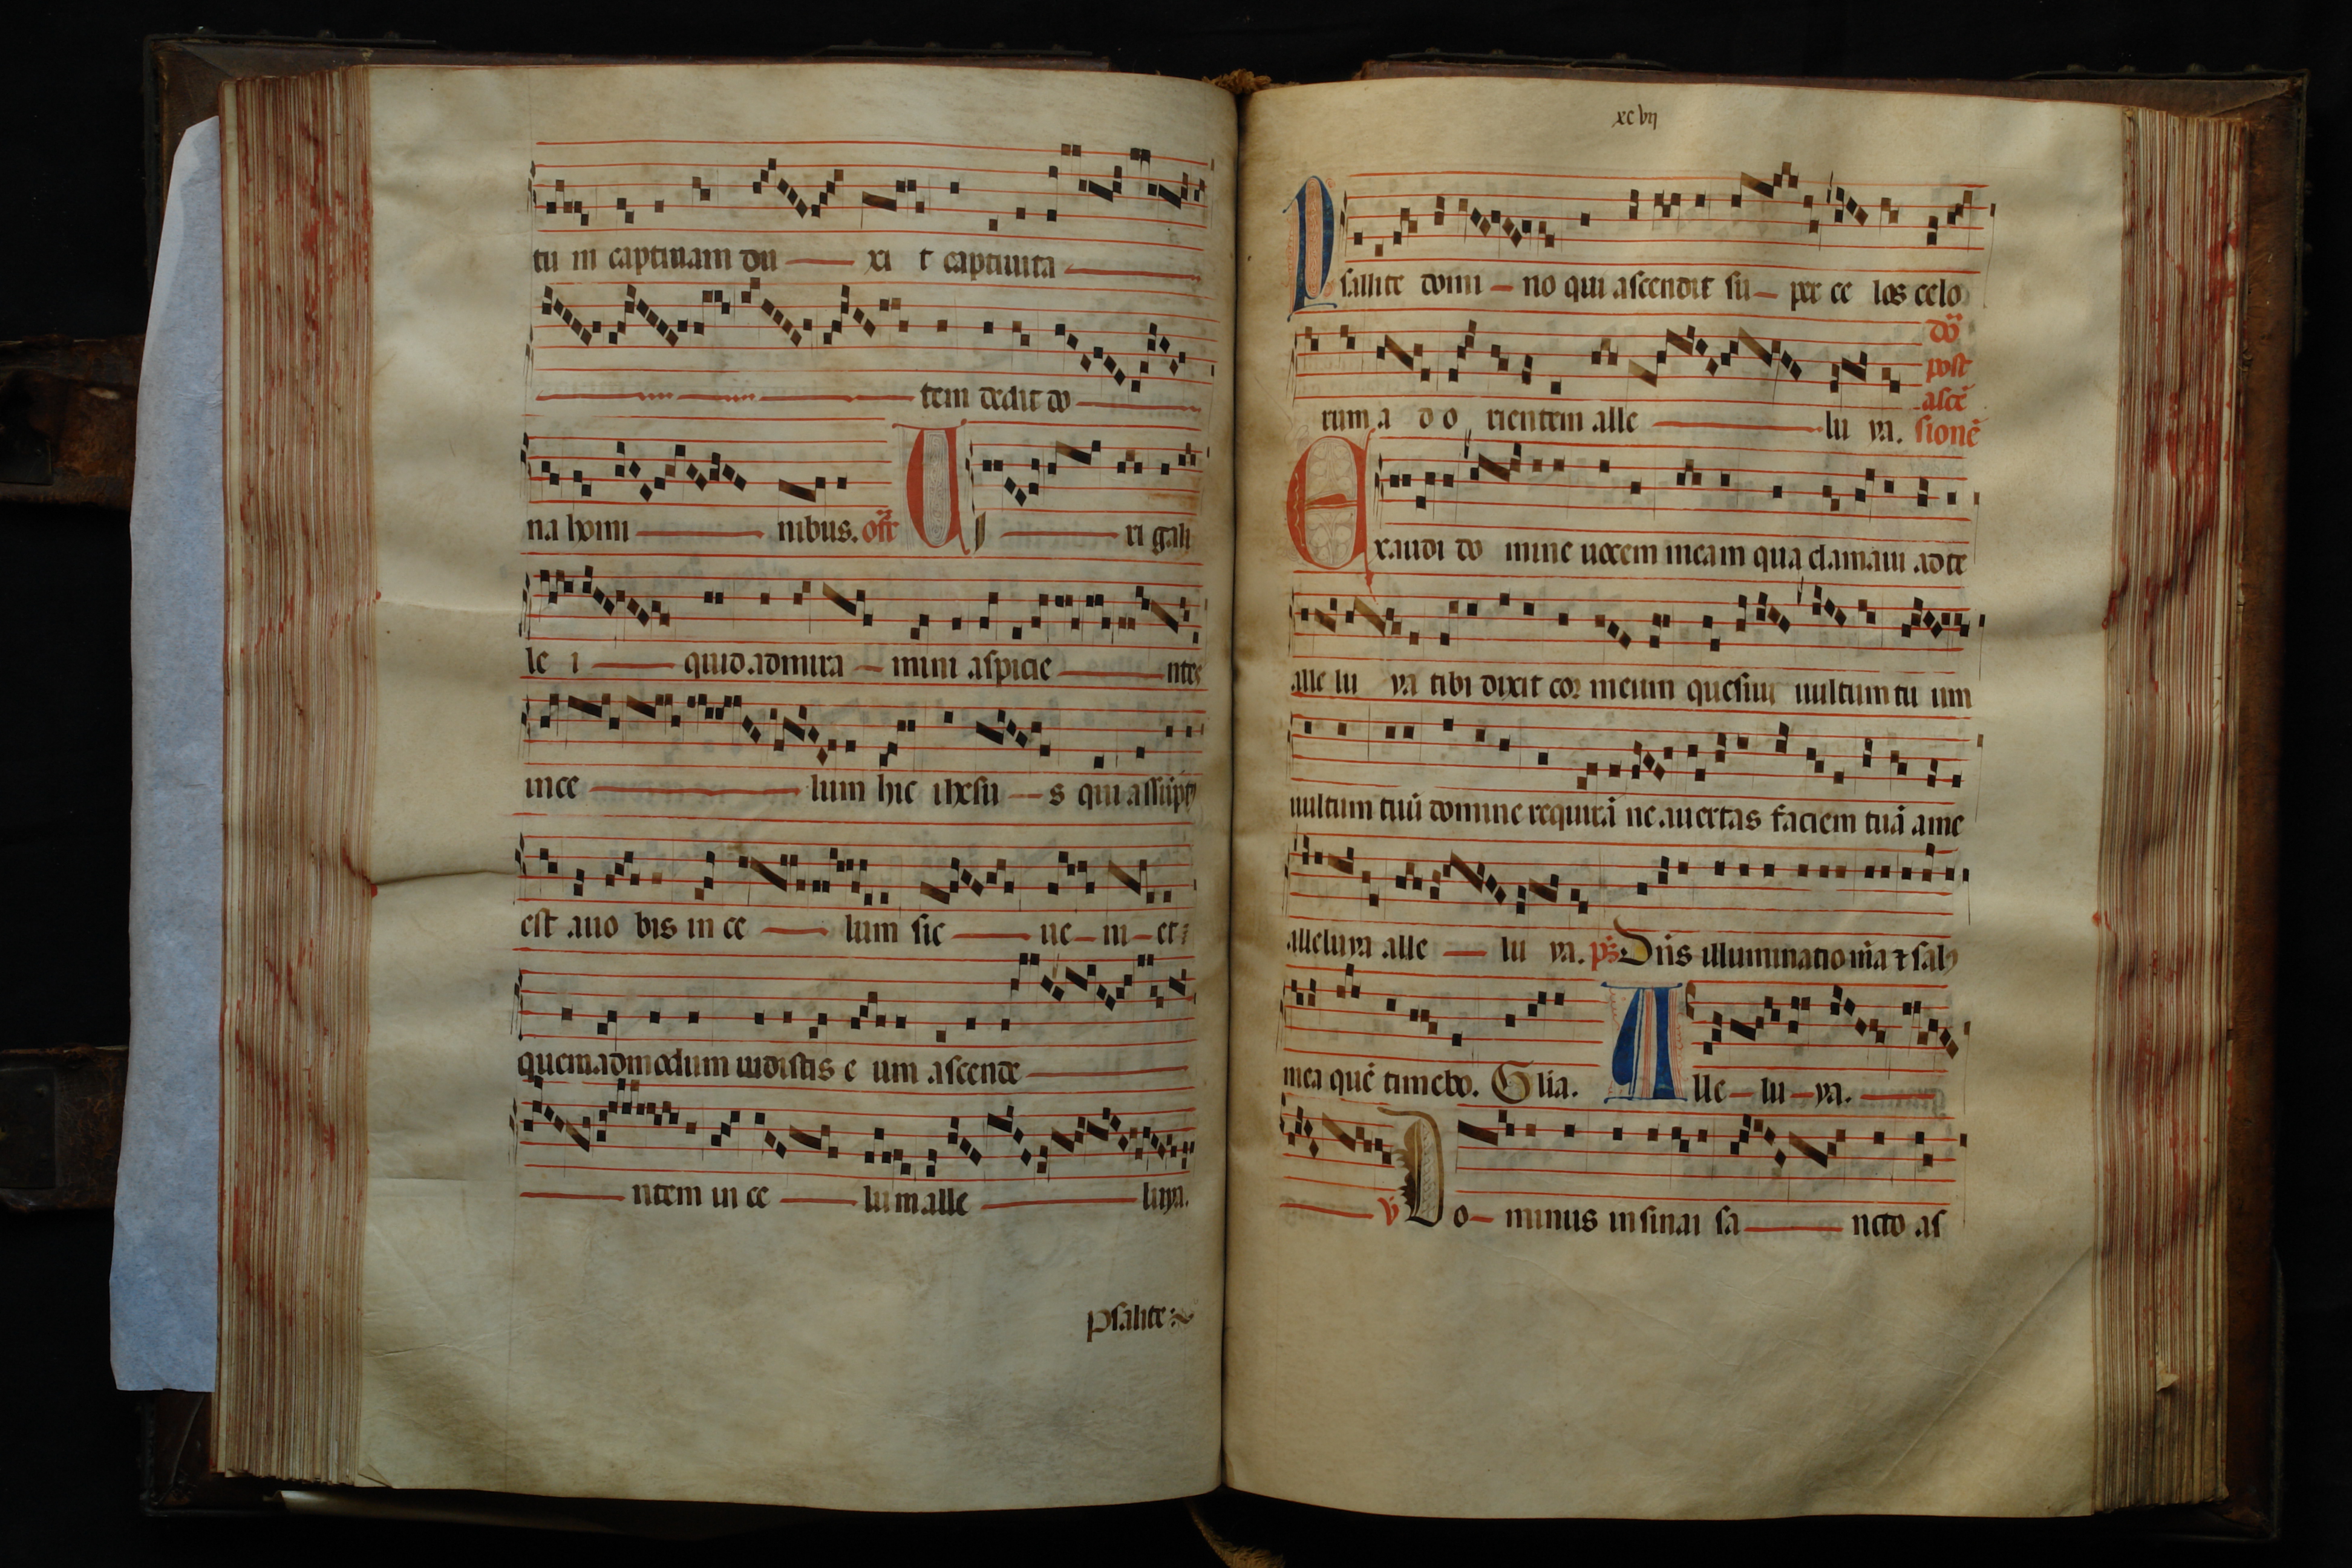 tu in captiuam du xi t captiuita
tem dedit do
na homi nibus. off Viri gali
le i quid admira mini aspicie ntes
in ce lum hic ihesu s qui assūpt9
est a uo bis in ce lum sic ue ni et
quemadmodum uidistis e um ascende
ntem in ce lum alle luya.
psalite
xcvij
Psallite domi no qui ascendit su per ce los celo
rum a d o rientem alle lu ya.
dō
post
ascē
sionē
Exaudi do mine uocem meam qua clamaui ad te
alle lu ya tibi dixit cor meum quesiui uultum tu um
uultum tuū domine requirā ne auertas faciem tuā a me
alleluya alle lu ya. ps Dn̄s illuminatio m̄a ⁊ sal9
mea quē timebo. Glia. Alle lu ya.
V Do minus in sinai sa ncto as